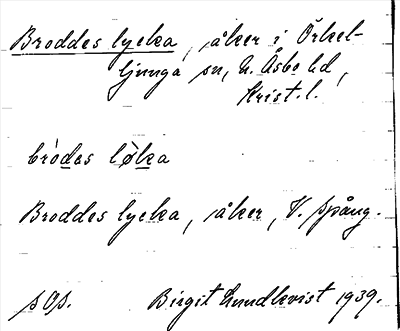 Broddes lycka, åker i Örkel-
ljunga sn, N. Åsbo hd,
Krist. l.
bròdas lø̀ka
Broddes lycka, åker, V. Spång.
sOs. Birgit Lundkvist 1939.